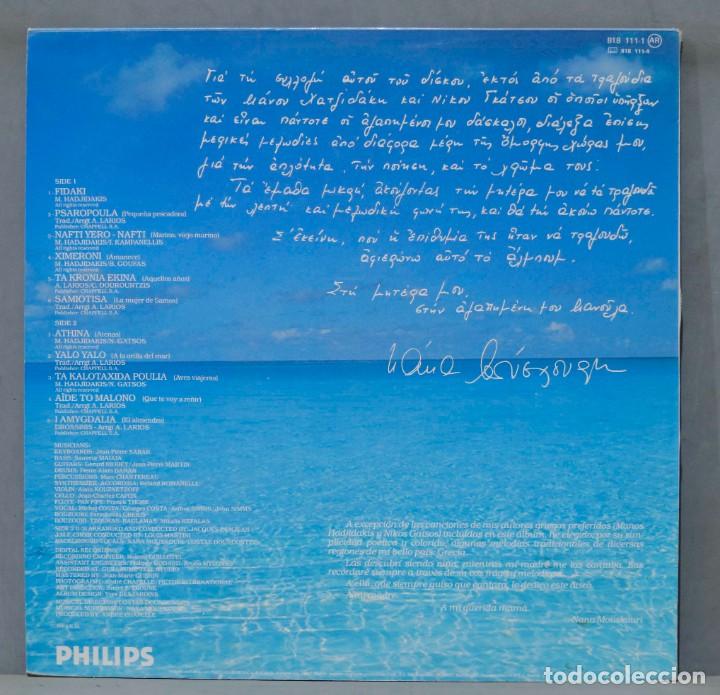 818 111-1 AR
818 111-4
Γιά τή συλλογή αὐτοῦ τοῦ δίσκου, ἐκτός ἀπό τά τραγούδια
τῶν Μάνου Χατζιδάκη καί Νίκου Γκάτσου οἱ ὁποῖοι ὑπῆρξαν
καί εἶναι πάντοτε οἱ ἀγαπημένοι μου δάσκαλοι, διάλεξα ἐπίσης
μερικές μελωδίες ἀπό διάφορα μέρη τῆς ὄμορφης χώρας μου,
γιά τήν ἁπλότητα, τήν ποίηση, καί τό χρῶμα τους.
Τά ἔμαθα μικρή, ἀκούγοντας τήν μητέρα μου νά τά τραγουδᾶ
μέ τήν λεπτή καί μελωδική φωνή της, καί θά τήν ἀκούω πάντοτε.
Σ' ἐκείνη, πού ἡ ἐπιθυμία της ἦταν νά τραγουδῶ,
ἀφιερώνω αὐτό τό ἄλμπουμ.
Στή μητέρα μου,
στήν ἀγαπημένη μου μανούλα.
Νάνα Μούσχουρη
SIDE 1
1. FIDAKI
M. HADJIDAKIS
All rights reserved
2. PSAROPOULA (Pequeña pescadora)
Trad./Arrgt A. LARIOS
Publisher: CHAPPELL S.A.
3. NAFTI YERO - NAFTI (Marino, viejo marino)
M. HADJIDAKIS/I. KAMPANELLIS
All rights reserved
4. XIMERONI (Amanece)
M. HADJIDAKIS/B. GOUFAS
All rights reserved
5. TA KRONIA EKINA (Aquellos años)
A. LARIOS/C. DOUROUNTZIS
Publisher: CHAPPELL S.A.
6. SAMIOTISA (La mujer de Samos)
Trad./Arrgt A. LARIOS
Publisher: CHAPPELL S.A.
SIDE 2
1. ATHINA (Atenas)
M. HADJIDAKIS/N. GATSOS
All rights reserved
2. YALO YALO (A la orilla del mar)
Trad./Arrgt A. LARIOS
Publisher: CHAPPELL S.A.
3. TA KALOTAXIDA POULIA (Aves viajeras)
M. HADJIDAKIS/N. GATSOS
All rights reserved
4. AÏDE TO MALONO (Que te voy a reñir)
Trad./Arrgt A. LARIOS
Publisher: CHAPPELL S.A.
5. I AMYGDALIA (El almendro)
DROSSINIS - Arrgt A. LARIOS
Publisher: CHAPPELL S.A.
MUSICIANS:
KEYBOARDS: Jean-Pierre SABAR
BASS: Sauveur MALLIA
GUITARS: Gérard /Jean-Pierre MARTIN
DRUMS: Pierre-Alain DAHAN
PERCUSSIONS: Marc CHANTEREAU
SYNTHESIZER, ACCORDION: Roland ROMANELLI
VIOLIN: Alain KOUZNETZOFF
CELLO: Jean-Charles CAPON
FLUTE - PAN PIPE:
VOCAL: Michel COSTA / Georges COSTA / / John SIMMS
BOUZOUKI:
BOUZOUKI - TZOURAS - BAGLAMAS:
ARRANGED AND CONDUCTED BY JACQUES
CHOIR CONDUCTED BY: LOUIS MARTINI
BACKGROUND VOCALS: NANA MOUSKOURI
DIGITAL RECORDING
RECORDING ENGINEER:
ASSISTANT ENGINEER:
RECORDED AT:
MASTERED BY Jean-Marie
PHOTOGRAPHY: André
ART DIRECTION:
ALBUM DESIGN:
MUSICAL DIRECTION:
MUSICAL SUPERVISION: NANA MOUSKOURI
PRODUCED BY ANDRÉ CHAPELLE
PHILIPS
A excepción de las canciones de mis autores griegos preferidos (Manos
Hadjidakis y Nikos Gatsos) incluidas en este álbum, he elegido por su sim-
plicidad, poética y colorido, algunas melodías tradicionales de diversas
regiones de mi bello país: Grecia.
Las descubrí siendo niña, mientras mi madre me las cantaba. Las
recordaré siempre a través de su voz frágil y melodiosa.
A ella, que siempre quiso que cantara, le dedico este disco.
A mi querida mamá.
Nana Mouskouri
todocoleccion